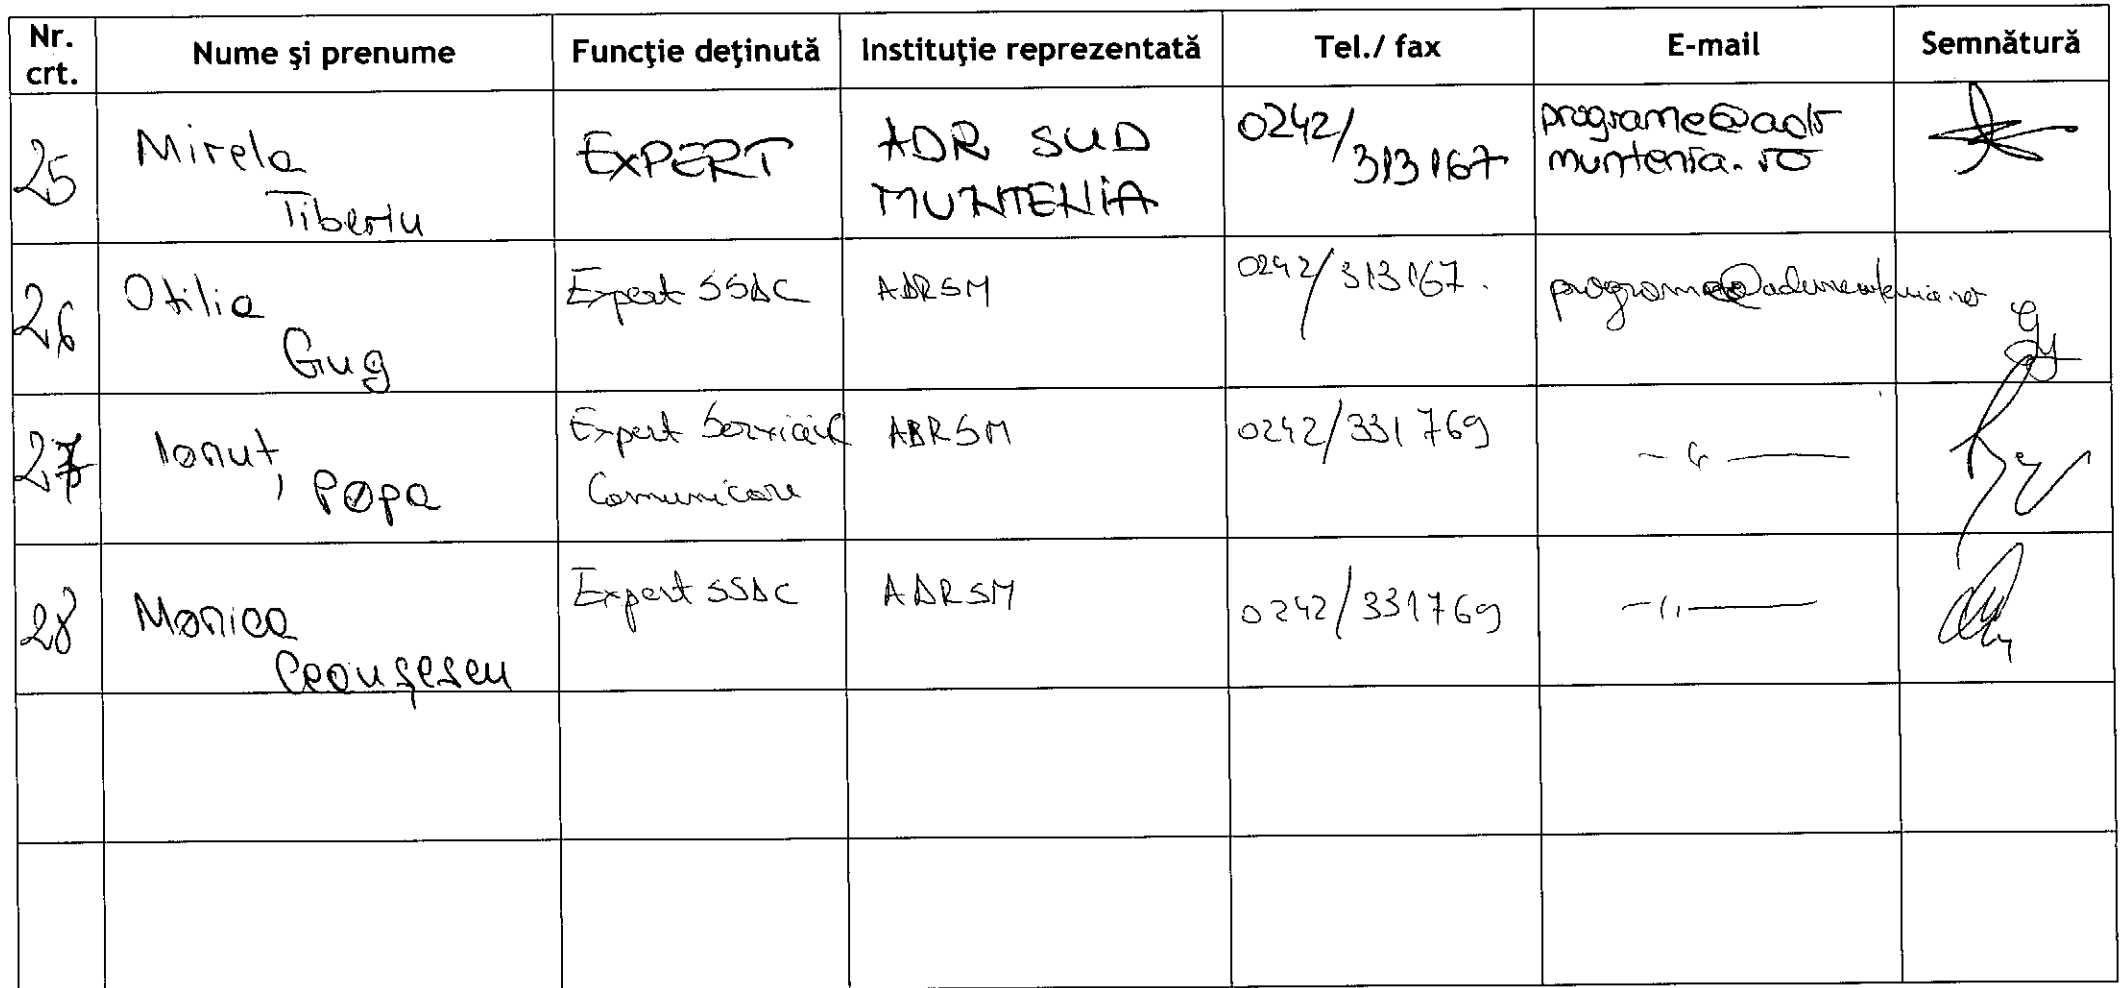 Nr. crt. Nume şi prenume Funcţie deţinută Instituţie reprezentată Tel./ fax E-mail Semnătură
25 Mirela Tiberiu EXPERT ADR SUD MUNTENIA 0242/313167 programe@adrmuntenia.ro
26 Otilia Gug Expert SSDC ADRSM 0242/313167.
27 Ionuţ Popa Expert Serviciul Comunicare ADRSM 0242/331769 — " —
28 Monica Ceauşescu Expert SSDC ADRSM 0242/331769 — " —